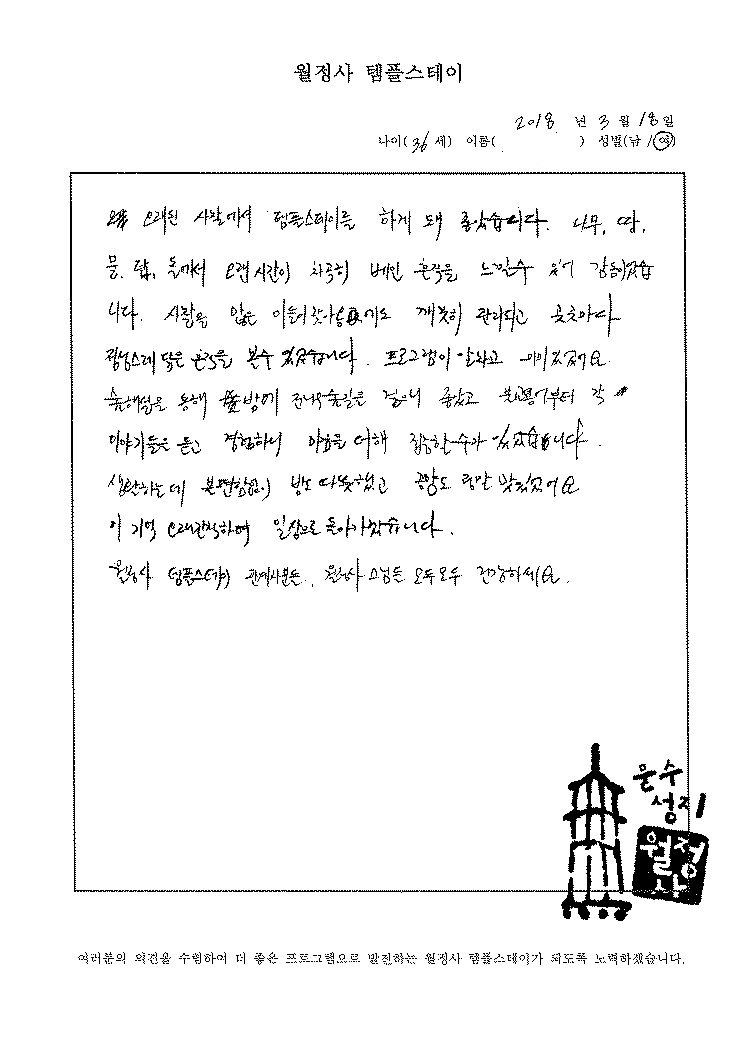 월정사 템플스테이
2018 년 3 월 18 일
나이( 36 세) 이름( ) 성별(남 / 여)
오래된 사찰에서 템플스테이를 하게 돼 좋았습니다. 나무, 땅,
물, 탑, 돌에서 오랜시간이 차곡히 베인 흔적을 느낄수 있어 감동이었습
니다. 사람은 많은 이들이 찾아 깨끗히 관리되고 곳곳마다
정성스레 닦은 흔적을 볼수 있었습니다. 프로그램이 알차고 의미있었어요
숲해설을 통해 전나무숲길을 걸으니 좋았고 각
이야기들을 듣고 경험하니 마음을 더해 집중할 수가 있었습니다.
생활하는데 불편함없이 방도 따뜻했고 공양도 정말 맛있었어요
이 기억 오래간직하며 일상으로 돌아가겠습니다.
월정사 템플스테이 관계자분들, 월정사 스님들 모두모두 건강하세요.
문수
성지
월정
사
여러분의 의견을 수렴하여 더 좋은 프로그램으로 발전하는 월정사 템플스테이가 되도록 노력하겠습니다.